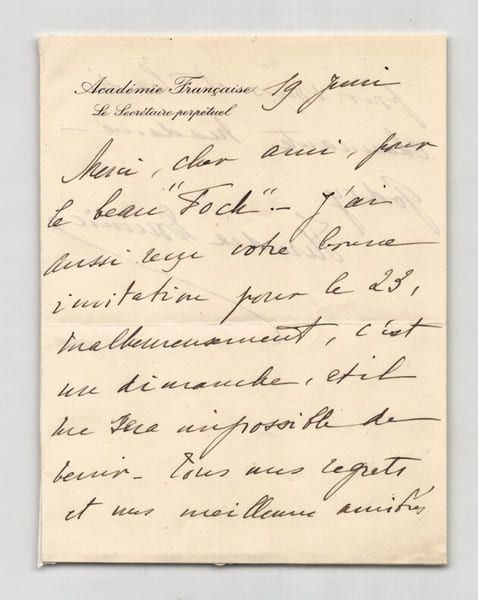 Académie Française
Le Secrétaire perpétuel
19 Juin
Merci, cher ami, pour
le beau "Foch". — J'ai
aussi reçu votre bonne
invitation pour le 23,
malheureusement, c'est
un dimanche, et il
me sera impossible de
venir — Tous mes regrets
et mes meilleures amitiés